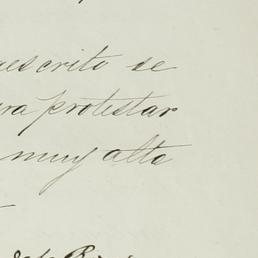 escrito se
ra protestar
muy alto